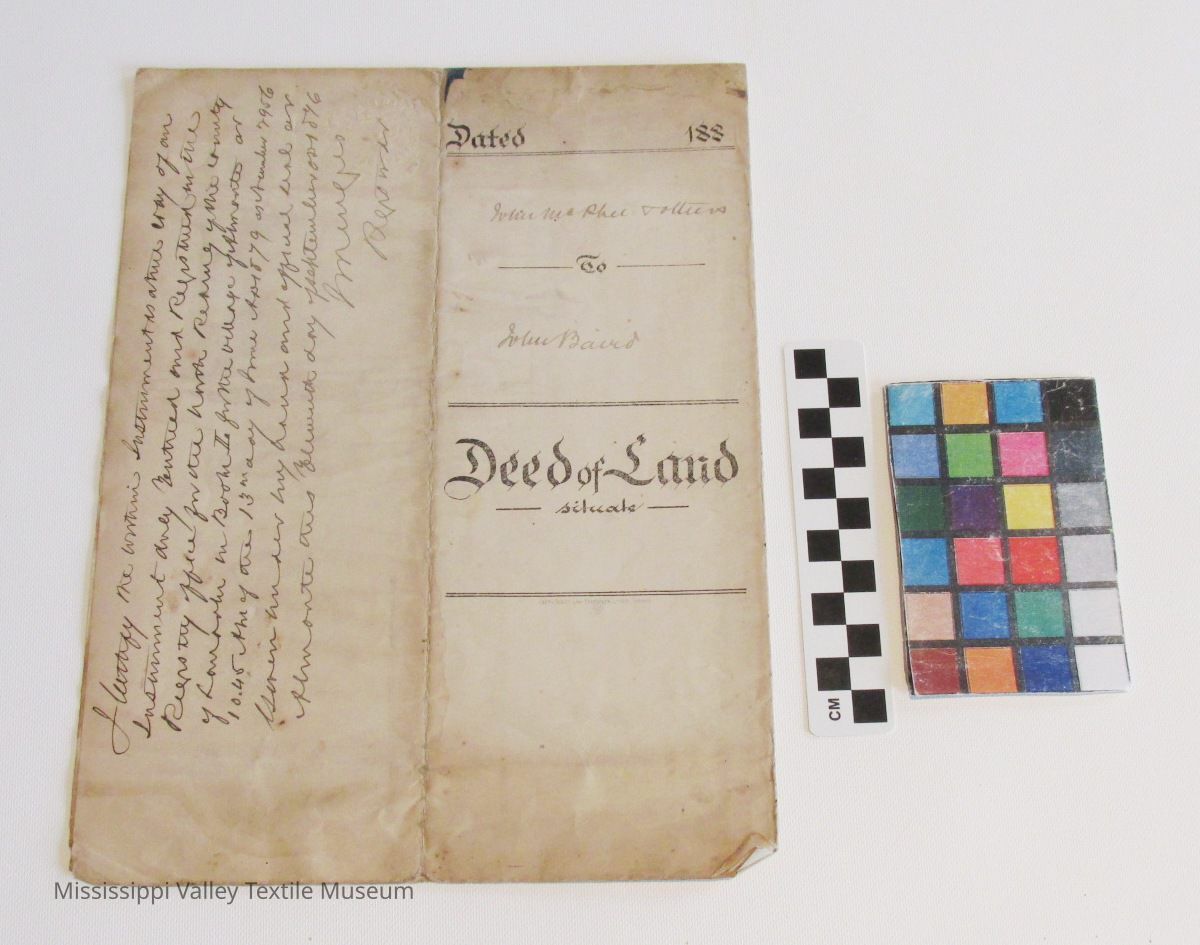 I Certify the within Instrument is a true copy of an
Instrument duly Entered and Registered in the
Registry Office for the North Riding of the County
of Lanark in Book for the Village of Almonte at
10.45 of the 13 day of June 1879
Given under my hand and official seal at
Almonte this Eleventh day of September
Registrar
Dated 188
John McPhee & others
To
John Baird
Deed of Land
situate
CM
Mississippi Valley Textile Museum